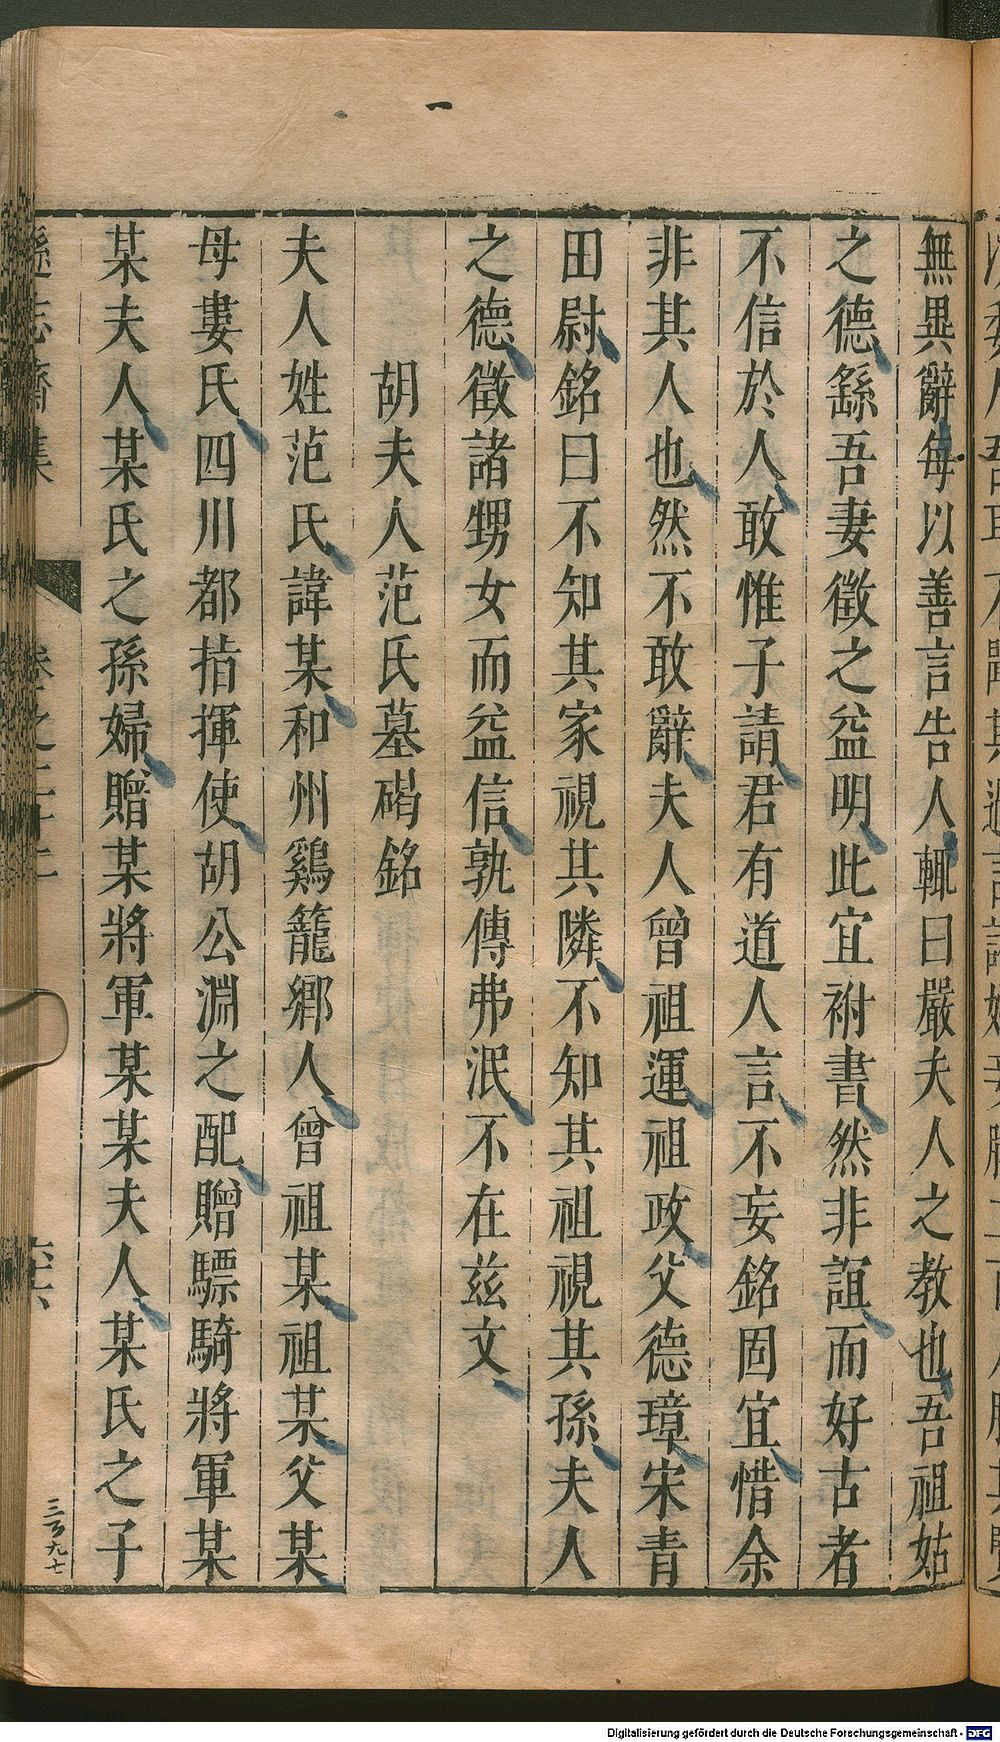 無異辭每以善言告人輒曰嚴夫人之教也吾祖姑
之德繇吾妻徵之益明此宜祔書然非誼而好古者
不信於人敢惟子請君有道人言不妄銘固宜惜余
非其人也然不敢辭夫人曾祖運祖政父德璋宋青
田尉銘曰不知其家視其隣不知其祖視其孫夫人
之德徵諸甥女而益信孰傳弗泯不在茲文
胡夫人范氏墓碣銘
夫人姓范氏諱某和州鷄籠鄉人曾祖某祖某父某
母婁氏四川都指揮使胡公淵之配贈驃騎將軍某
某夫人某氏之孫婦贈某將軍某某夫人某氏之子
遜志齋集
卷之二十二
六六
Digitalisierung gefördert durch die Deutsche Forschungsgemeinschaft - DFG